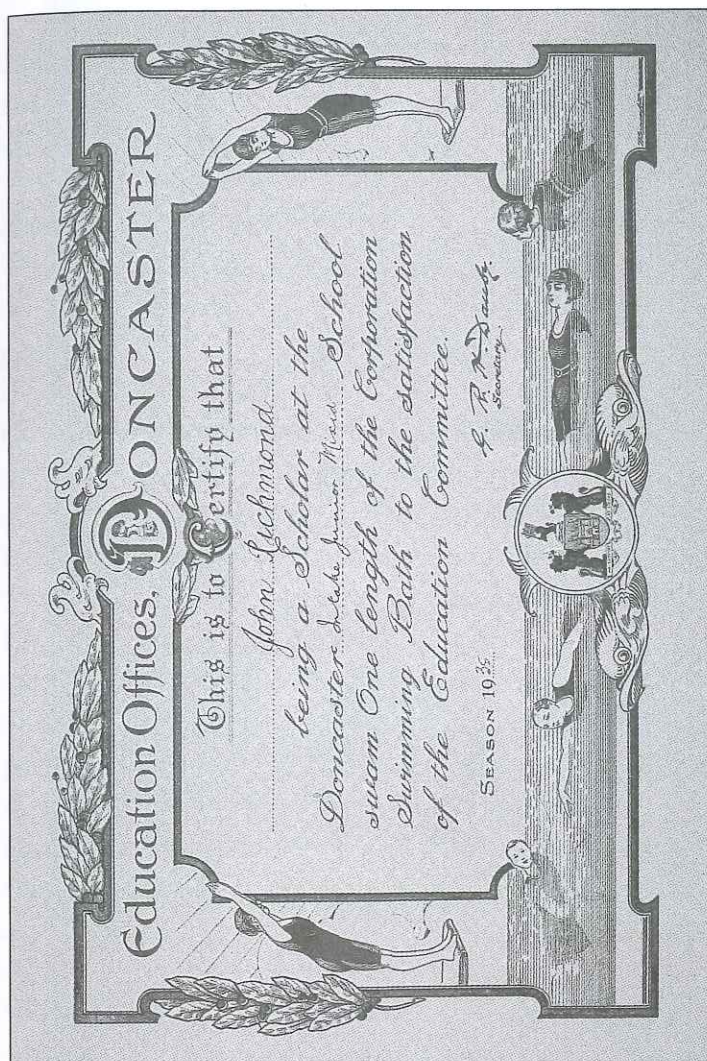 Education Offices, DONCASTER
This is to Certify that
John Richmond
being a Scholar at the
Doncaster Intake Junior Mixed School
swam One length of the Corporation
Swimming Bath to the satisfaction
of the Education Committee.
Secretary.
SEASON 19